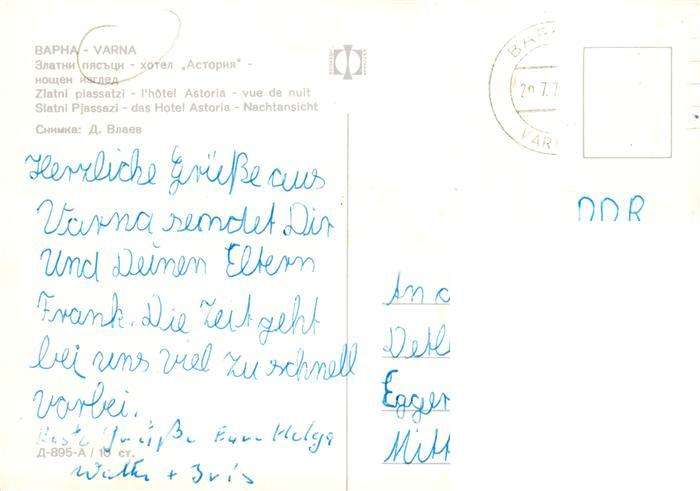 ВАРНА - VARNA
Златни пясъци - хотел „Астория" -
нощен изглед
Zlatni piassatzi - l'hôtel Astoria - vue de nuit
Slatni Pjassazi - das Hotel Astoria - Nachtansicht
Снимка: Д. Влаев
Herzliche Grüße aus
Varna sendet Dir
und Deinen Eltern
Frank. Die Zeit geht
bei uns viel zu schnell
vorbei.
Grüße Helga
Д-895-А / 10 ст.
+ Iris
VAR
DDR
An
Detl
Egger
Mitt